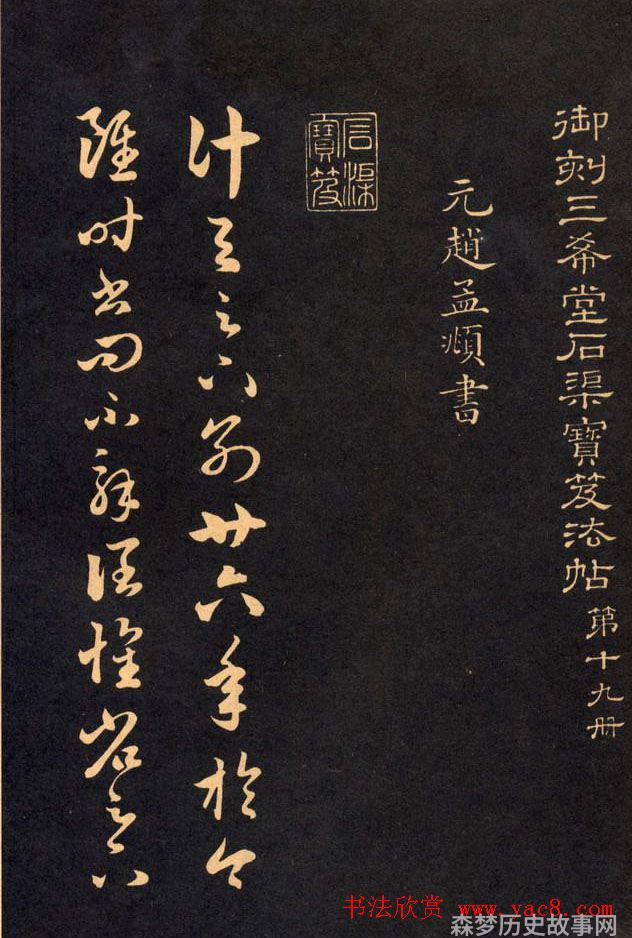 御刻三希堂石渠寶笈法帖 第十九册
元趙孟頫書
石渠寶笈
計與足下別廿六年於今
雖時書問不解闊懷省足下
书法欣赏 www.yac8.com
森梦历史故事网